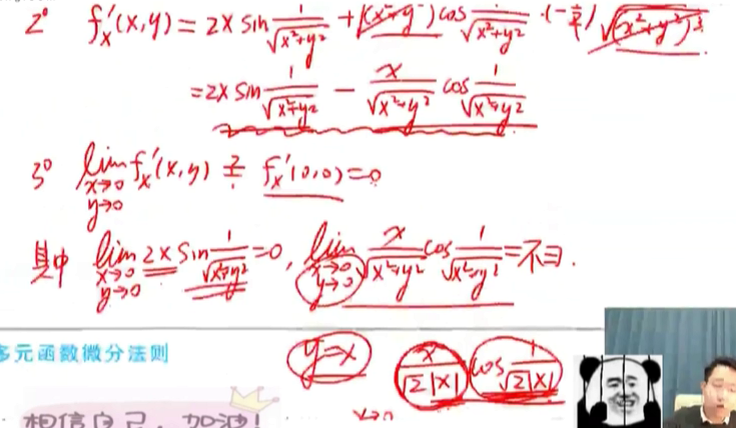 2° f'ₓ(x,y) = 2x sin 1/√(x²+y²) + (x²+y²) cos 1/√(x²+y²) ·(-
= 2x sin 1/√(x²+y²) - x/√(x²+y²) cos 1/√(x²+y²)
3° lim x→0 y→0 f'ₓ(x,y) ≟ f'ₓ(0,0)=0
其中 lim x→0 y→0 2x sin 1/√(x²+y²) =0, lim x→0 y→0 x/√(x²+y²) cos 1/√(x²+y²) = 不∃.
多元函数微分法则
y=x x/√2|x| cos 1/√2|x|
x→0
相信自己,加油!